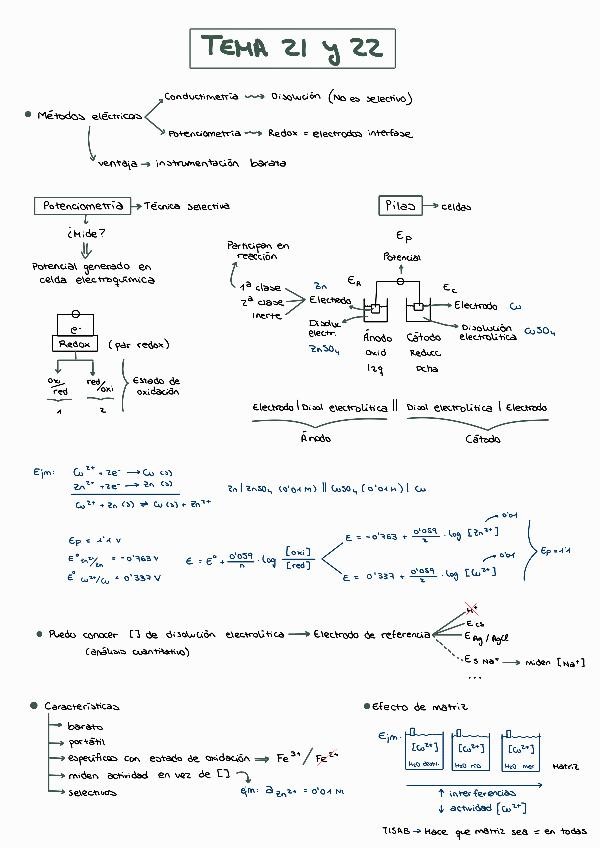 TEMA 21 y 22
• Métodos eléctricos
Conductimetría ⟿ Disolución (No es selectivo)
Potenciometría ⟿ Redox = electrodos interfase
ventaja → instrumentación barata
Potenciometría → Técnica selectiva
¿Mide?
Potencial generado en
celda electroquímica
e⁻
Redox (par redox)
oxi/red red/oxi
1 2
Estado de
oxidación
Pilas → celdas
Ep
Potencial
Participan en
reacción
1ª clase
2ª clase
inerte
Zn
Electrodo
Disoluc
electr.
ZnSO₄
E_A
E_C
Electrodo Cu
Disolución
electrolítica CuSO₄
Ánodo Cátodo
Oxid Reducc
Izq Dcha
Electrodo | Disol electrolítica || Disol electrolítica | Electrodo
Ánodo Cátodo
Ejm: Cu²⁺ + 2e⁻ → Cu (s)
Zn²⁺ + 2e⁻ → Zn (s)
Cu²⁺ + Zn (s) ⇌ Cu (s) + Zn²⁺
Zn | ZnSO₄ (0'01 M) || CuSO₄ (0'01 M) | Cu
Ep = 1'1 V
E° Zn²⁺/Zn = -0'763 V
E° Cu²⁺/Cu = 0'337 V
E = E° + 0'059/n · log [oxi]/[red]
E = -0'763 + 0'059/2 · log [Zn²⁺] 0'01
E = 0'337 + 0'059/2 · log [Cu²⁺] 0'01
Ep = 1'1
• Puedo conocer [ ] de disolución electrolítica → Electrodo de referencia
(análisis cuantitativo)
H⁺
E cs
E Ag/AgCl
E s Na⁺ → miden [Na⁺]
...
• Características
barato
portátil
específicos con estado de oxidación → Fe³⁺/Fe²⁺
miden actividad en vez de [ ]
ejm: a Zn²⁺ = 0'01 M
selectivos
• Efecto de matriz
Ejm: [Cu²⁺] [Cu²⁺] [Cu²⁺]
H₂O destil. H₂O río H₂O mar Matriz
↑ interferencias
↓ actividad [Cu²⁺]
TISAB → Hace que matriz sea = en todas